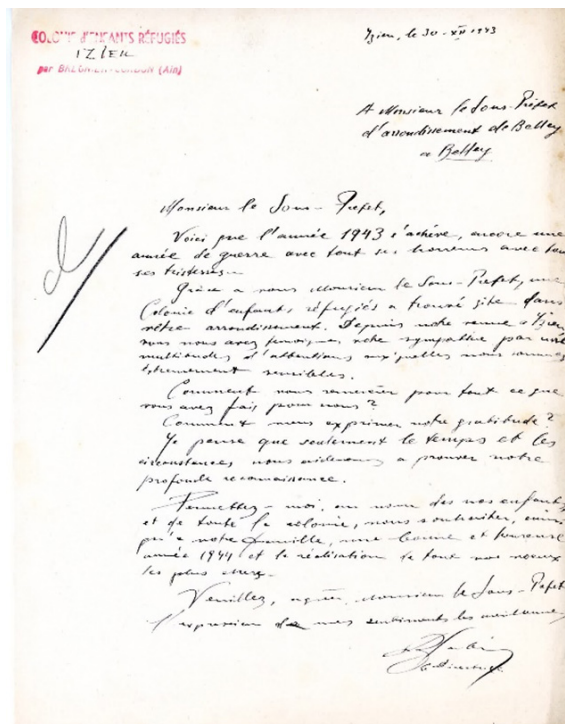 COLONIE d'ENFANTS RÉFUGIÉS
IZIEU
par BREGNIER-CORDON (Ain)
Izieu, le 30-XII 1943
A Monsieur le Sous-Préfet
d'arrondissement de Belley
a Belley
Monsieur le Sous-Prefet,
Voici que l'année 1943 s'achève, encore une
année de guerre avec tout ses horreurs avec tou
ses tristesses
Grâce a vous Monsieur le Sous-Prefet, une
Colonie d'enfants réfugiés a trouvé gite dans
vôtre arrondissement. Depuis notre venue a Izieu
vous nous avez temoigné vôtre sympathie par une
multitudes d'attentions auxquelles nous sommes
extrêmement sensibles.
Comment vous remercier pour tout ce que
vous avez fais pour nous?
Comment vous exprimer notre gratitude?
Je pense que seulement le temps et les
circonstances nous aiderons a prouver notre
profonde reconnaissance.
Permettez-moi, au nom des nos enfants,
et de toute la colonie, vous souhaiter, ainsi
qu'a votre famille, une bonne et heureuse
année 1944 et la réalisation de tout vos voeux
les plus chers.
Veuillez, agréer, Monsieur le Sous-Prefet
l'expression de mes sentiments les meilleurs